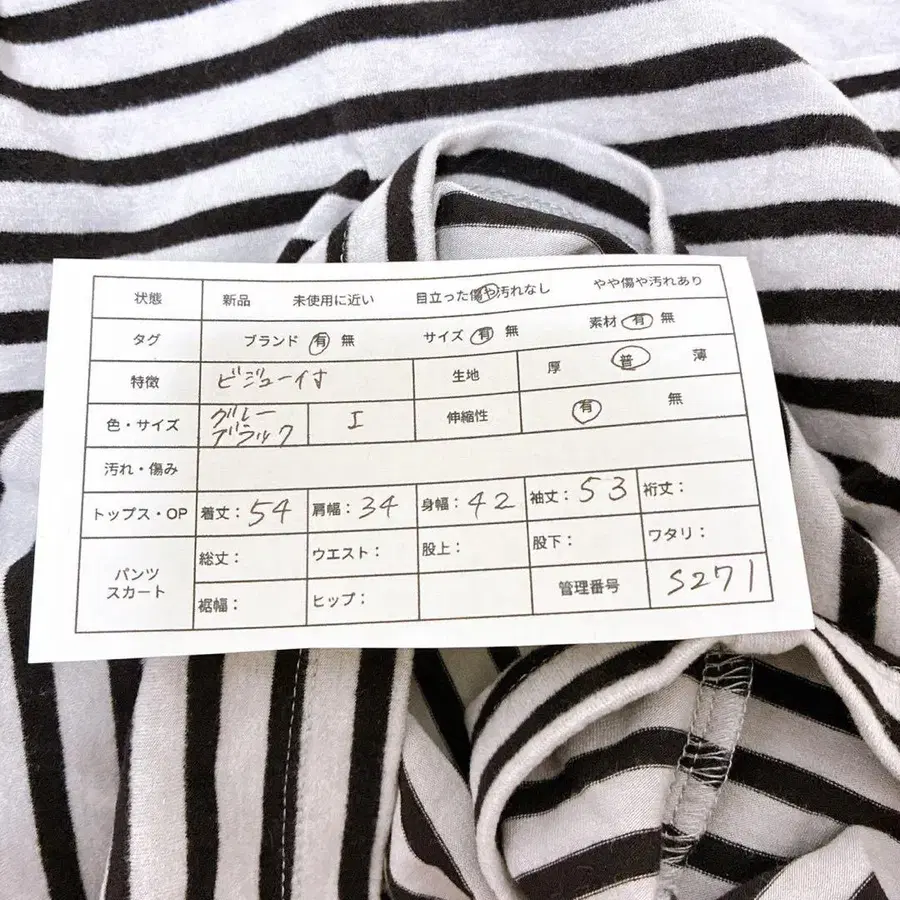 状態 新品 未使用に近い 目立った傷や汚れなし やや傷や汚れあり
タグ ブランド 有 無 サイズ 有 無 素材 有 無
特徴 ビジュー付 生地 厚 普 薄
色・サイズ グレー ブラック I 伸縮性 有 無
汚れ・傷み
トップス・OP 着丈：54 肩幅：34 身幅：42 袖丈：53 裄丈：
パンツ スカート 総丈： ウエスト： 股上： 股下： ワタリ：
裾幅： ヒップ： 管理番号 S271